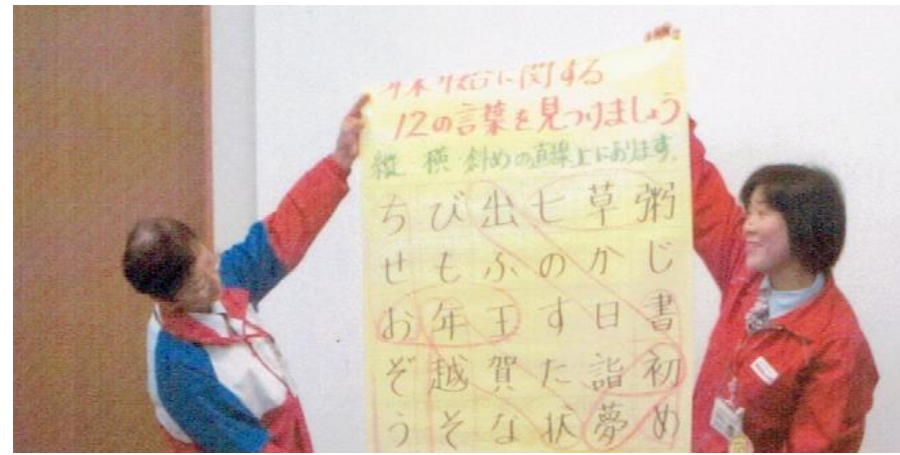 年末年始に関する
12の言葉を見つけましょう
縦 横 斜めの直線上にあります。
ち び 出 七 草 粥
せ も ふ の か じ
お 年 玉 す 日 書
ぞ 越 賀 た 詣 初
う そ な 状 夢 め